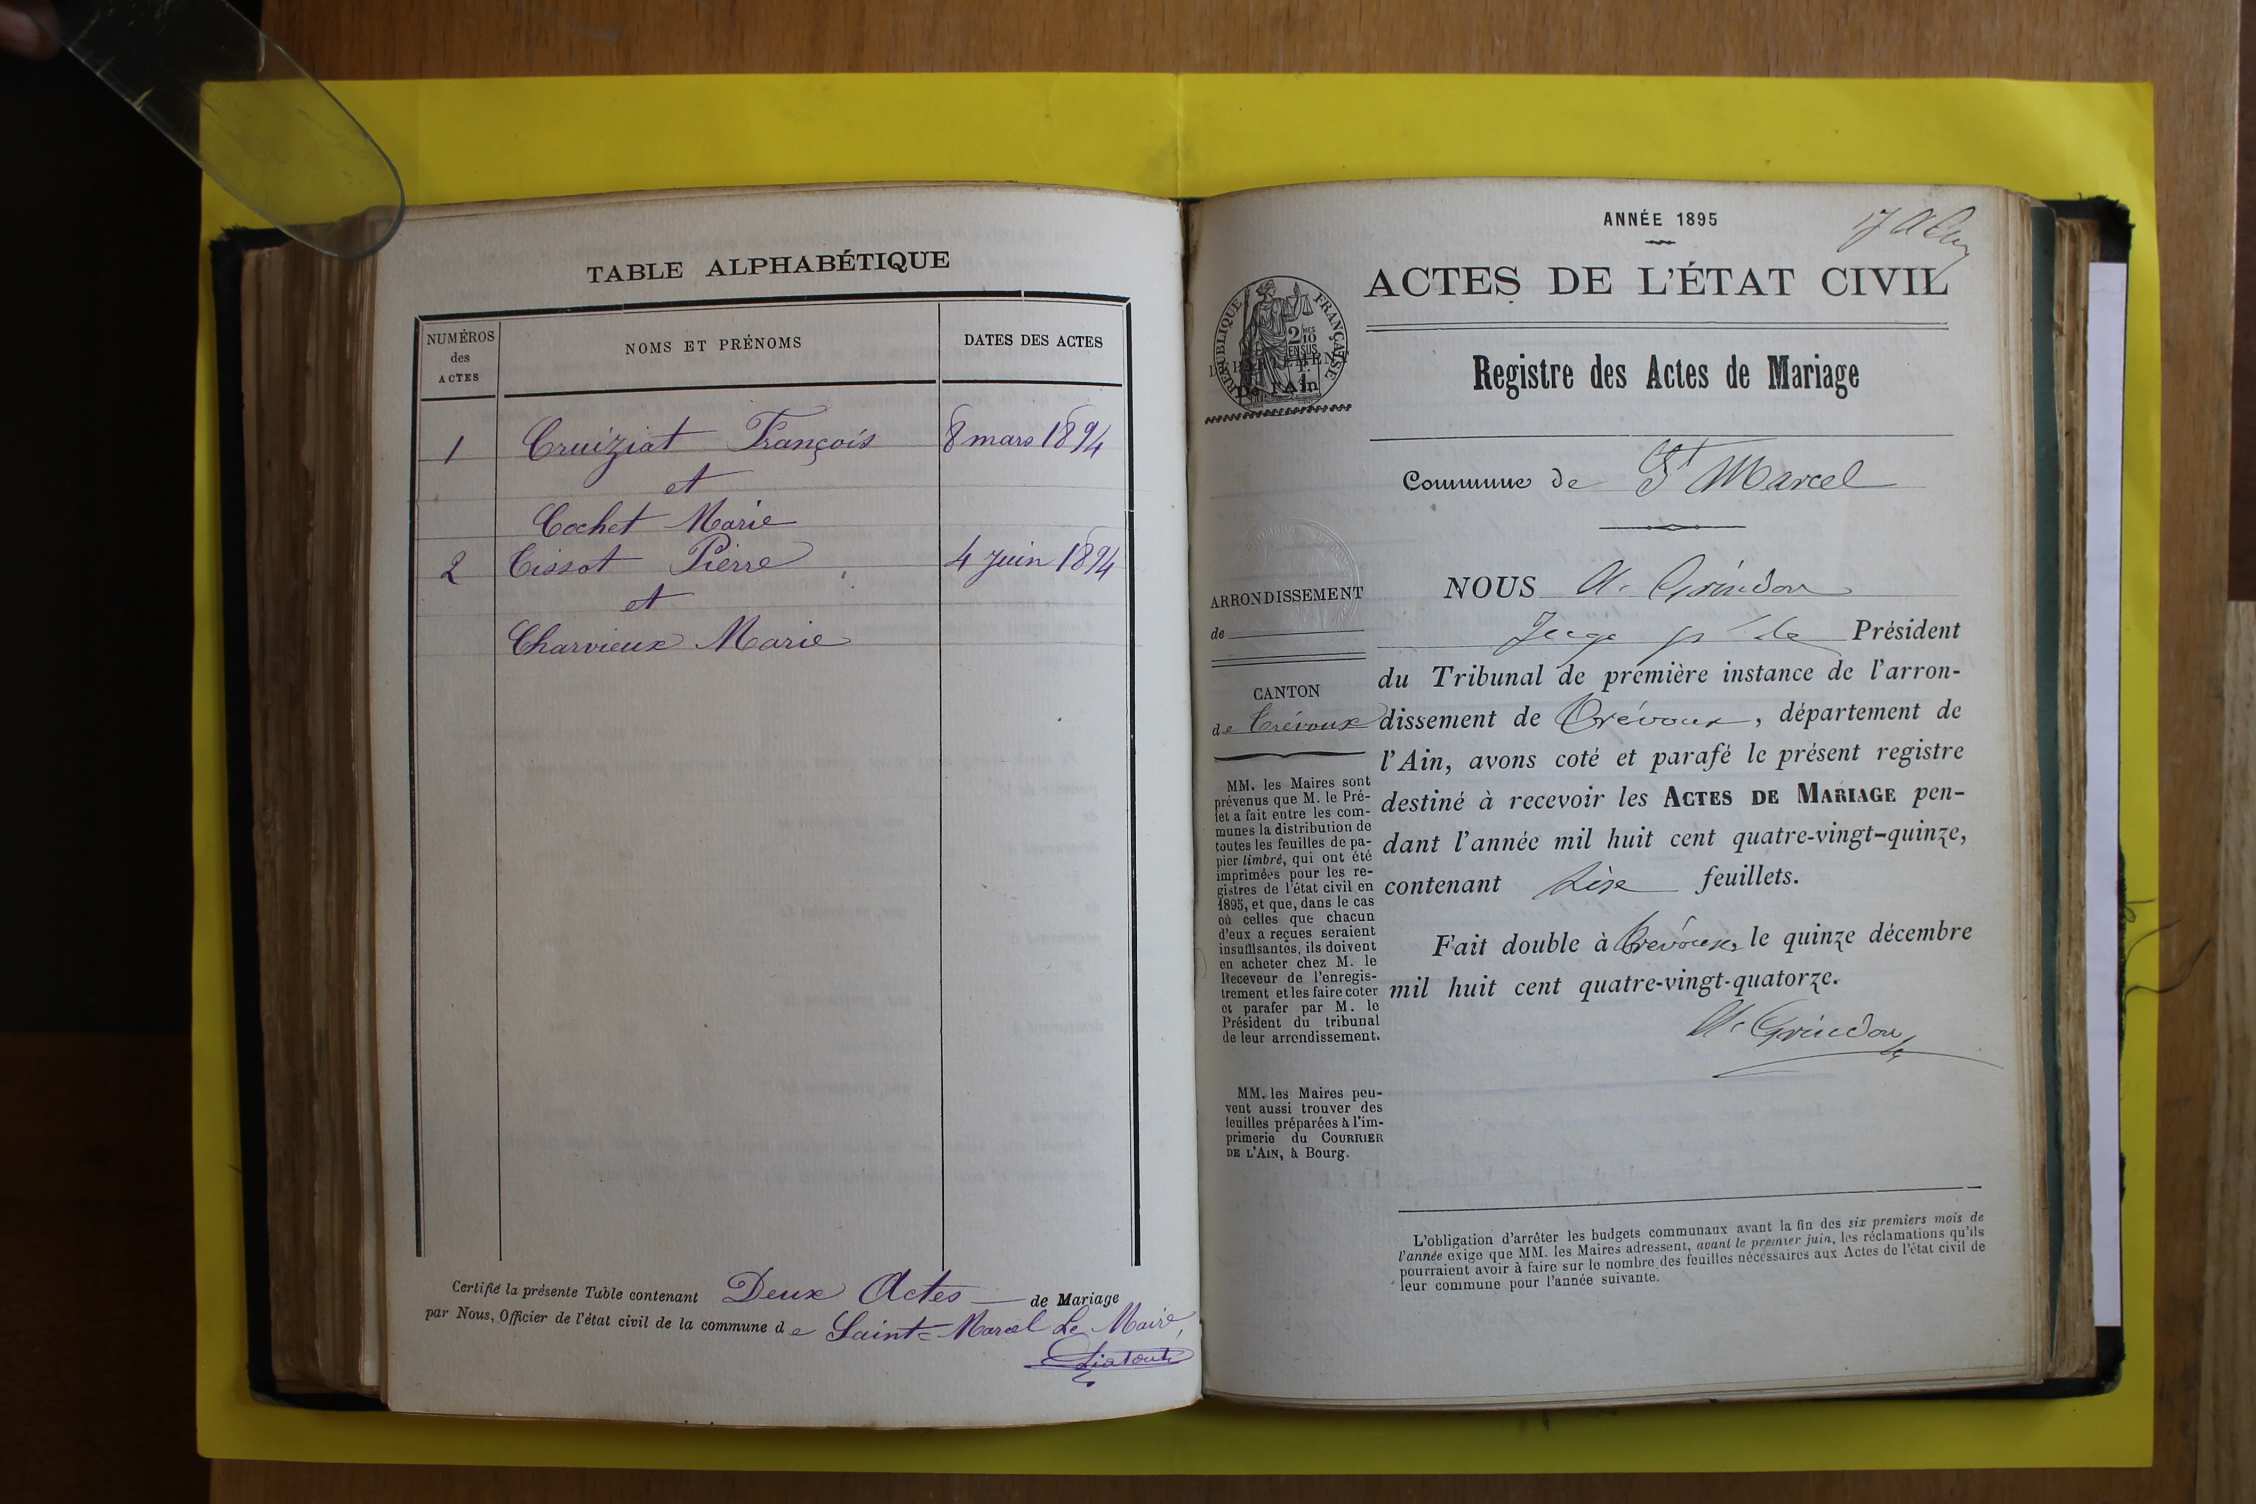 TABLE ALPHABÉTIQUE
NUMÉROS
des
ACTES
NOMS ET PRÉNOMS
DATES DES ACTES
1
Cruiziat François
8 mars 1894
et
Cochet Marie
2
Cissot Pierre
4 juin 1894
et
Charvieux Marie
Certifié la présente Table contenant Deux Actes de Mariage
par Nous, Officier de l'état civil de la commune de Saint-Marcel Le Maire,
Liatout
ANNÉE 1895
ACTES DE L'ÉTAT CIVIL
RÉPUBLIQUE FRANÇAISE
2/10 EN SUS
DÉPARTEMENT
De l'Ain
Registre des Actes de Mariage
Commune de St Marcel
ARRONDISSEMENT
de
CANTON
de Trévoux
MM. les Maires sont
prévenus que M. le Pré-
fet a fait entre les com-
munes la distribution de
toutes les feuilles de pa-
pier timbré, qui ont été
imprimées pour les re-
gistres de l'état civil en
1895, et que, dans le cas
où celles que chacun
d'eux a reçues seraient
insuffisantes, ils doivent
en acheter chez M. le
Receveur de l'enregis-
trement et les faire coter
et parafer par M. le
Président du tribunal
de leur arrondissement.
MM. les Maires peu-
vent aussi trouver des
feuilles préparées à l'im-
primerie du COURRIER
DE L'AIN, à Bourg.
NOUS A. Grindon
Juge pr le Président
du Tribunal de première instance de l'arron-
dissement de Trévoux, département de
l'Ain, avons coté et parafé le présent registre
destiné à recevoir les ACTES DE MARIAGE pen-
dant l'année mil huit cent quatre-vingt-quinze,
contenant six feuillets.
Fait double à Trévoux, le quinze décembre
mil huit cent quatre-vingt-quatorze.
A. Grindon
L'obligation d'arrêter les budgets communaux avant la fin des six premiers mois de
l'année exige que MM. les Maires adressent, avant le premier juin, les réclamations qu'ils
pourraient avoir à faire sur le nombre des feuilles nécessaires aux Actes de l'état civil de
leur commune pour l'année suivante.